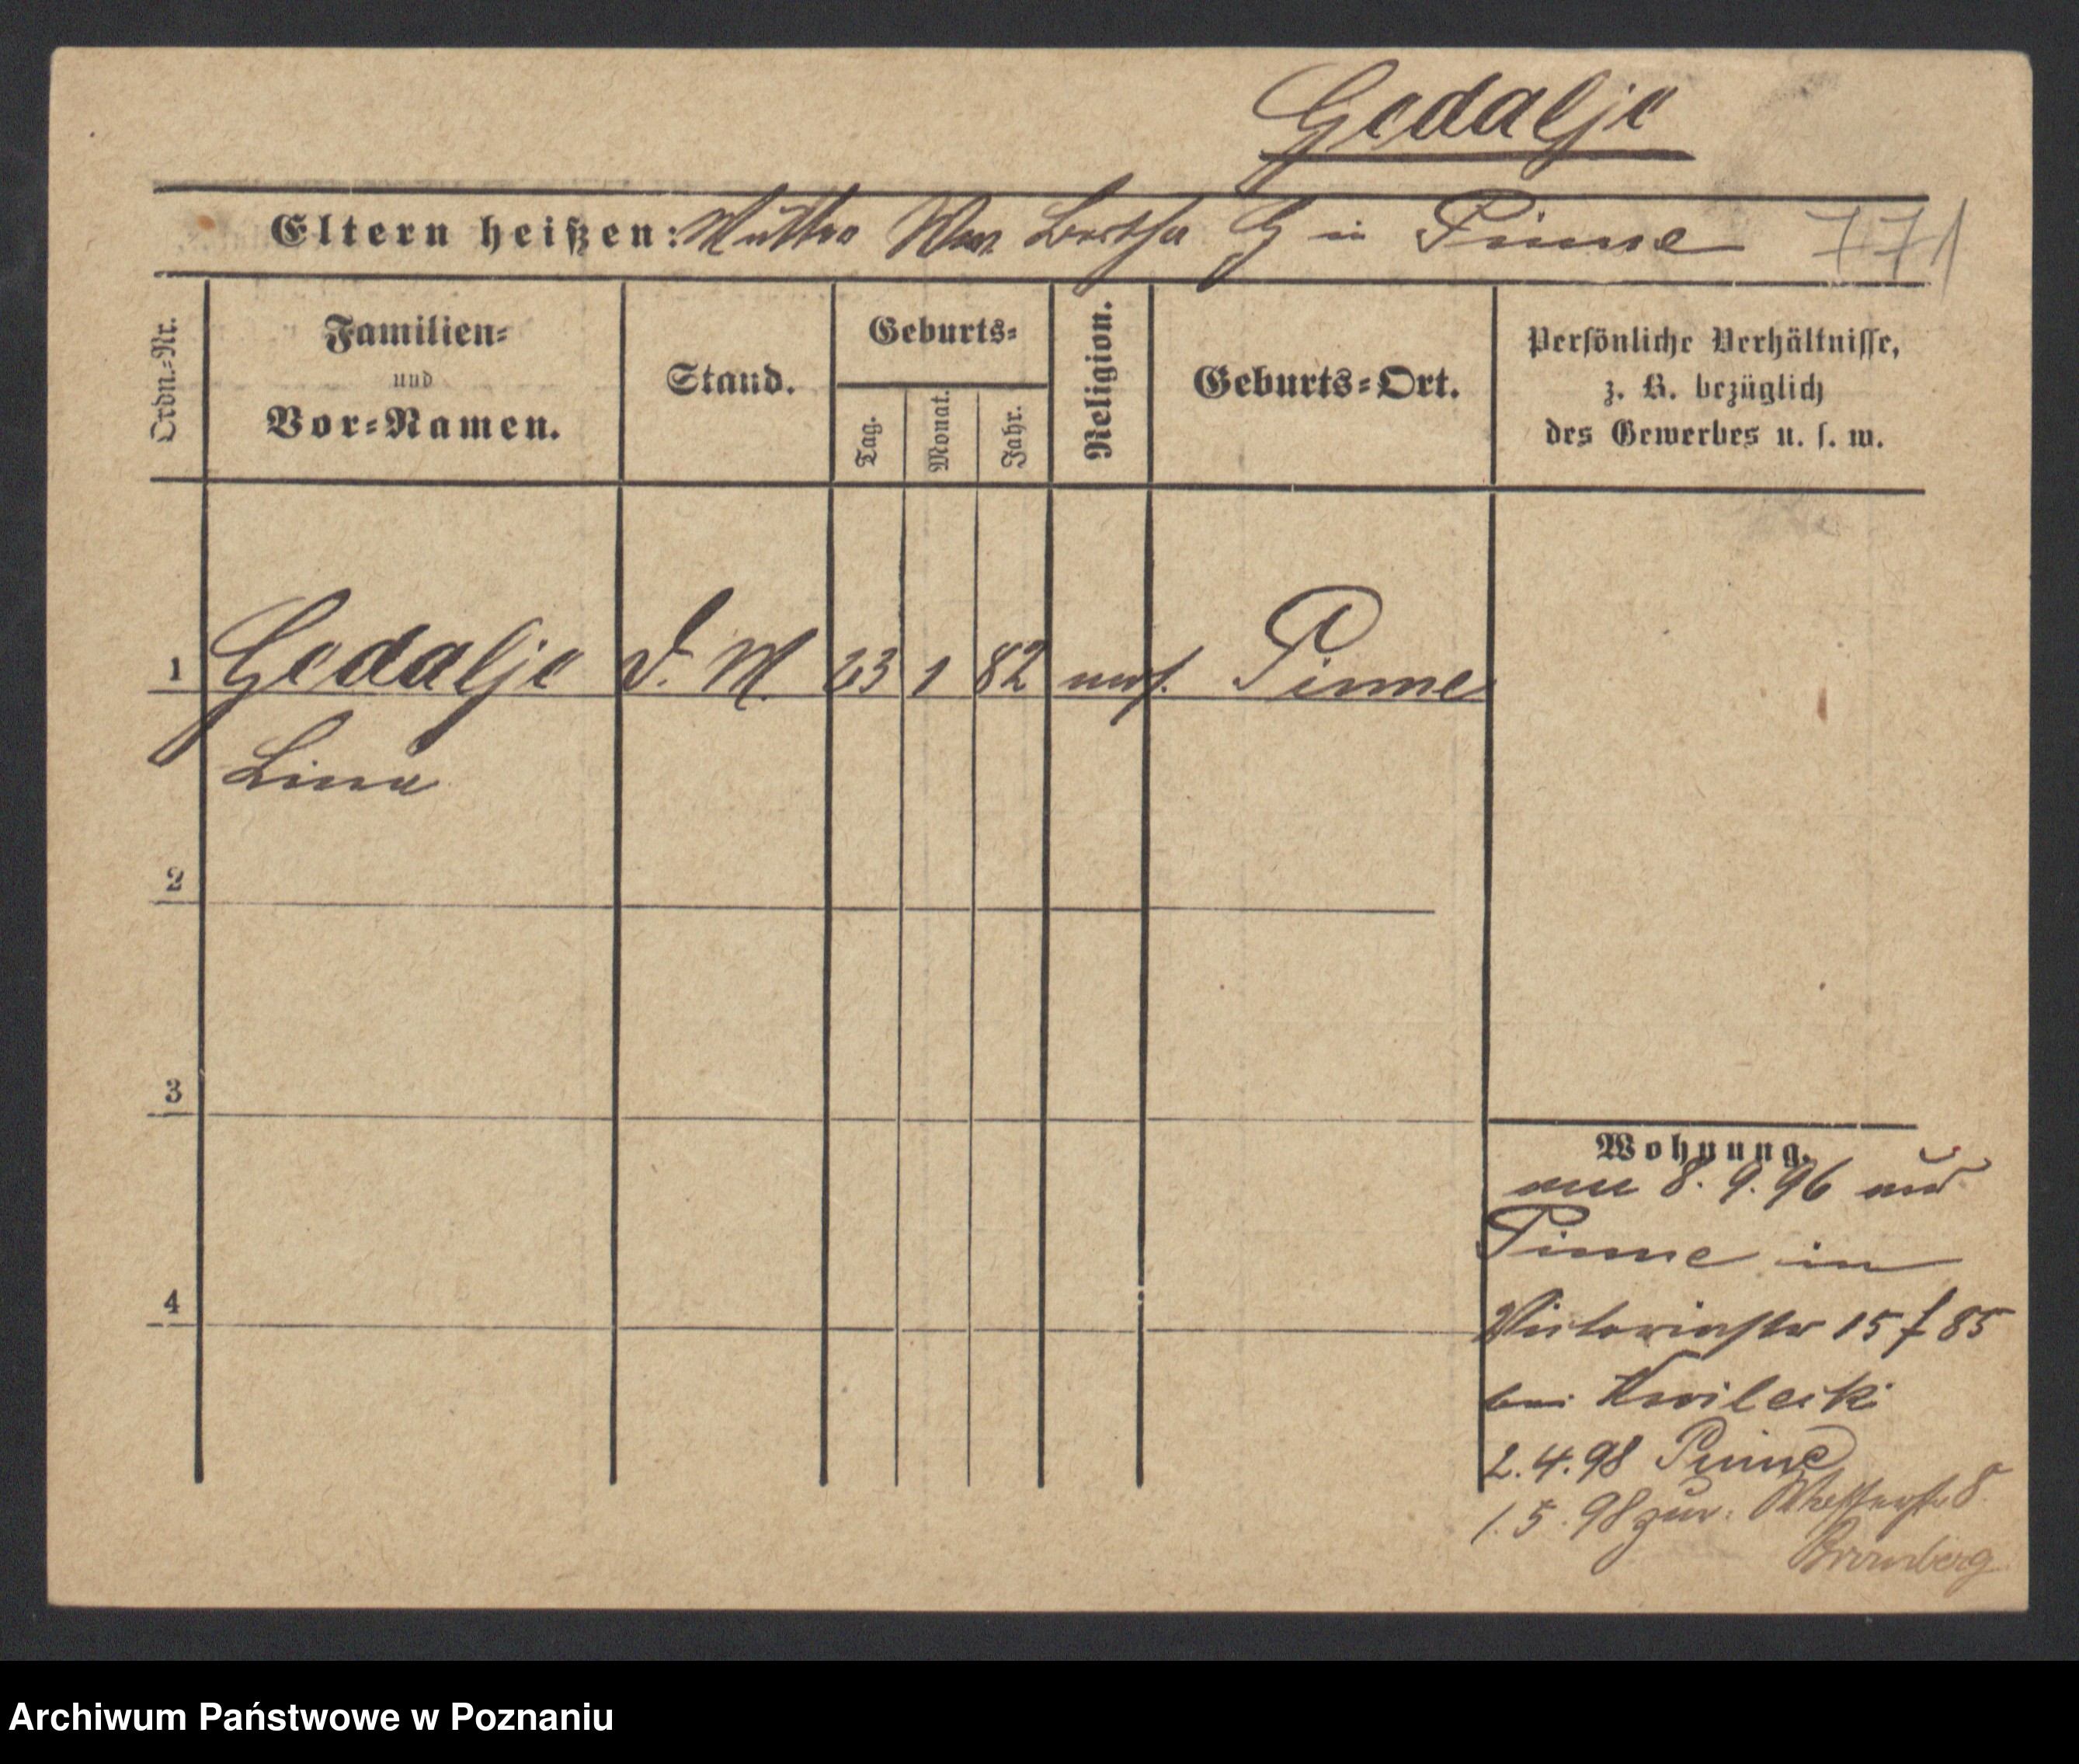 Gedalje
Eltern heißen: Mutter Wwe. Bertha G in Pinne 771
Ordn.-Nr.
Familien-
und
Vor-Namen.
Stand.
Geburts-
Tag.
Monat.
Jahr.
Religion.
Geburts-Ort.
Persönliche Verhältnisse,
z. B. bezüglich
des Gewerbes u. s. w.
1 Gedalje D. M. 23 1 82 mos. Pinne
Lina
2
3
4
Wohnung.
8.9.96 aus
Pinne in
Victoriastr 15 f 85
bei Kwilecki
2.4.98 Pinne
1.5.98 zur. 8.
Bromberg
Archiwum Państwowe w Poznaniu